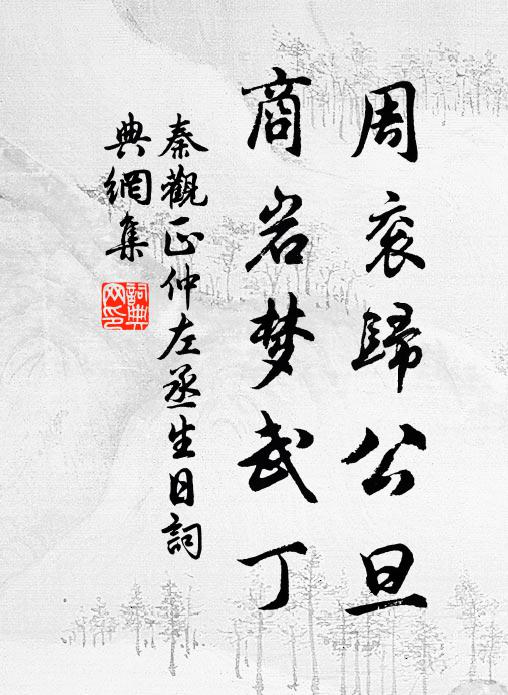 周衮歸公旦
商岩梦武丁
秦觀正仲左丞生日詞
典網集
詞典网印